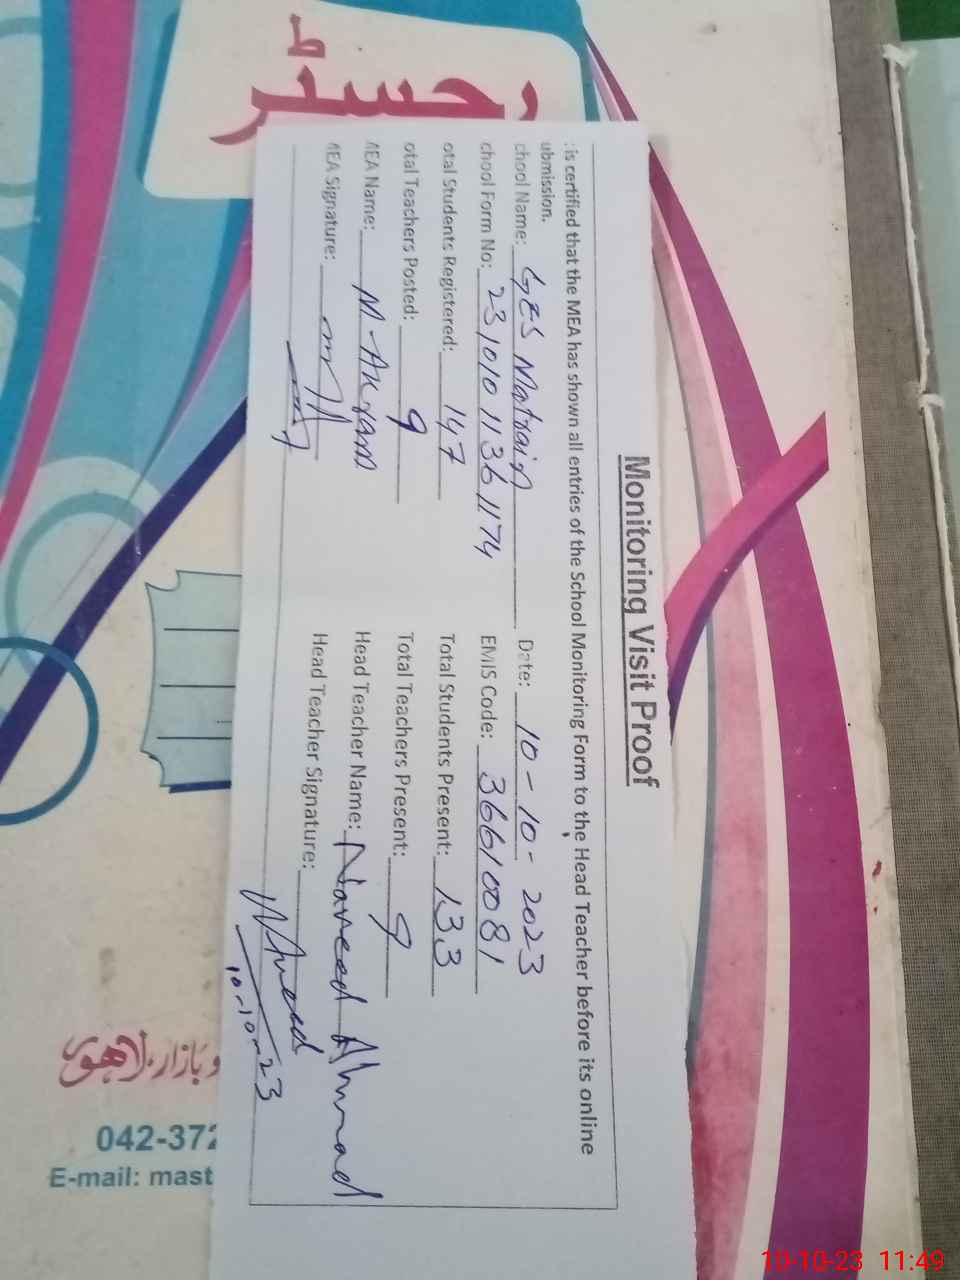 رجسٹر
Monitoring Visit Proof
is certified that the MEA has shown all entries of the School Monitoring Form to the Head Teacher before its online
ubmission.
chool Name: GES Matrain Date: 10-10-2023
chool Form No: 231010113611174 EMIS Code: 36610081
otal Students Registered: 147 Total Students Present: 133
otal Teachers Posted: 9 Total Teachers Present: 9
MEA Name: M-Akram Head Teacher Name: Naveed Ahmad
MEA Signature: Head Teacher Signature: Naveed
10-10-23
و بازار، لاہور
042-372
E-mail: mast
10-10-23 11:49